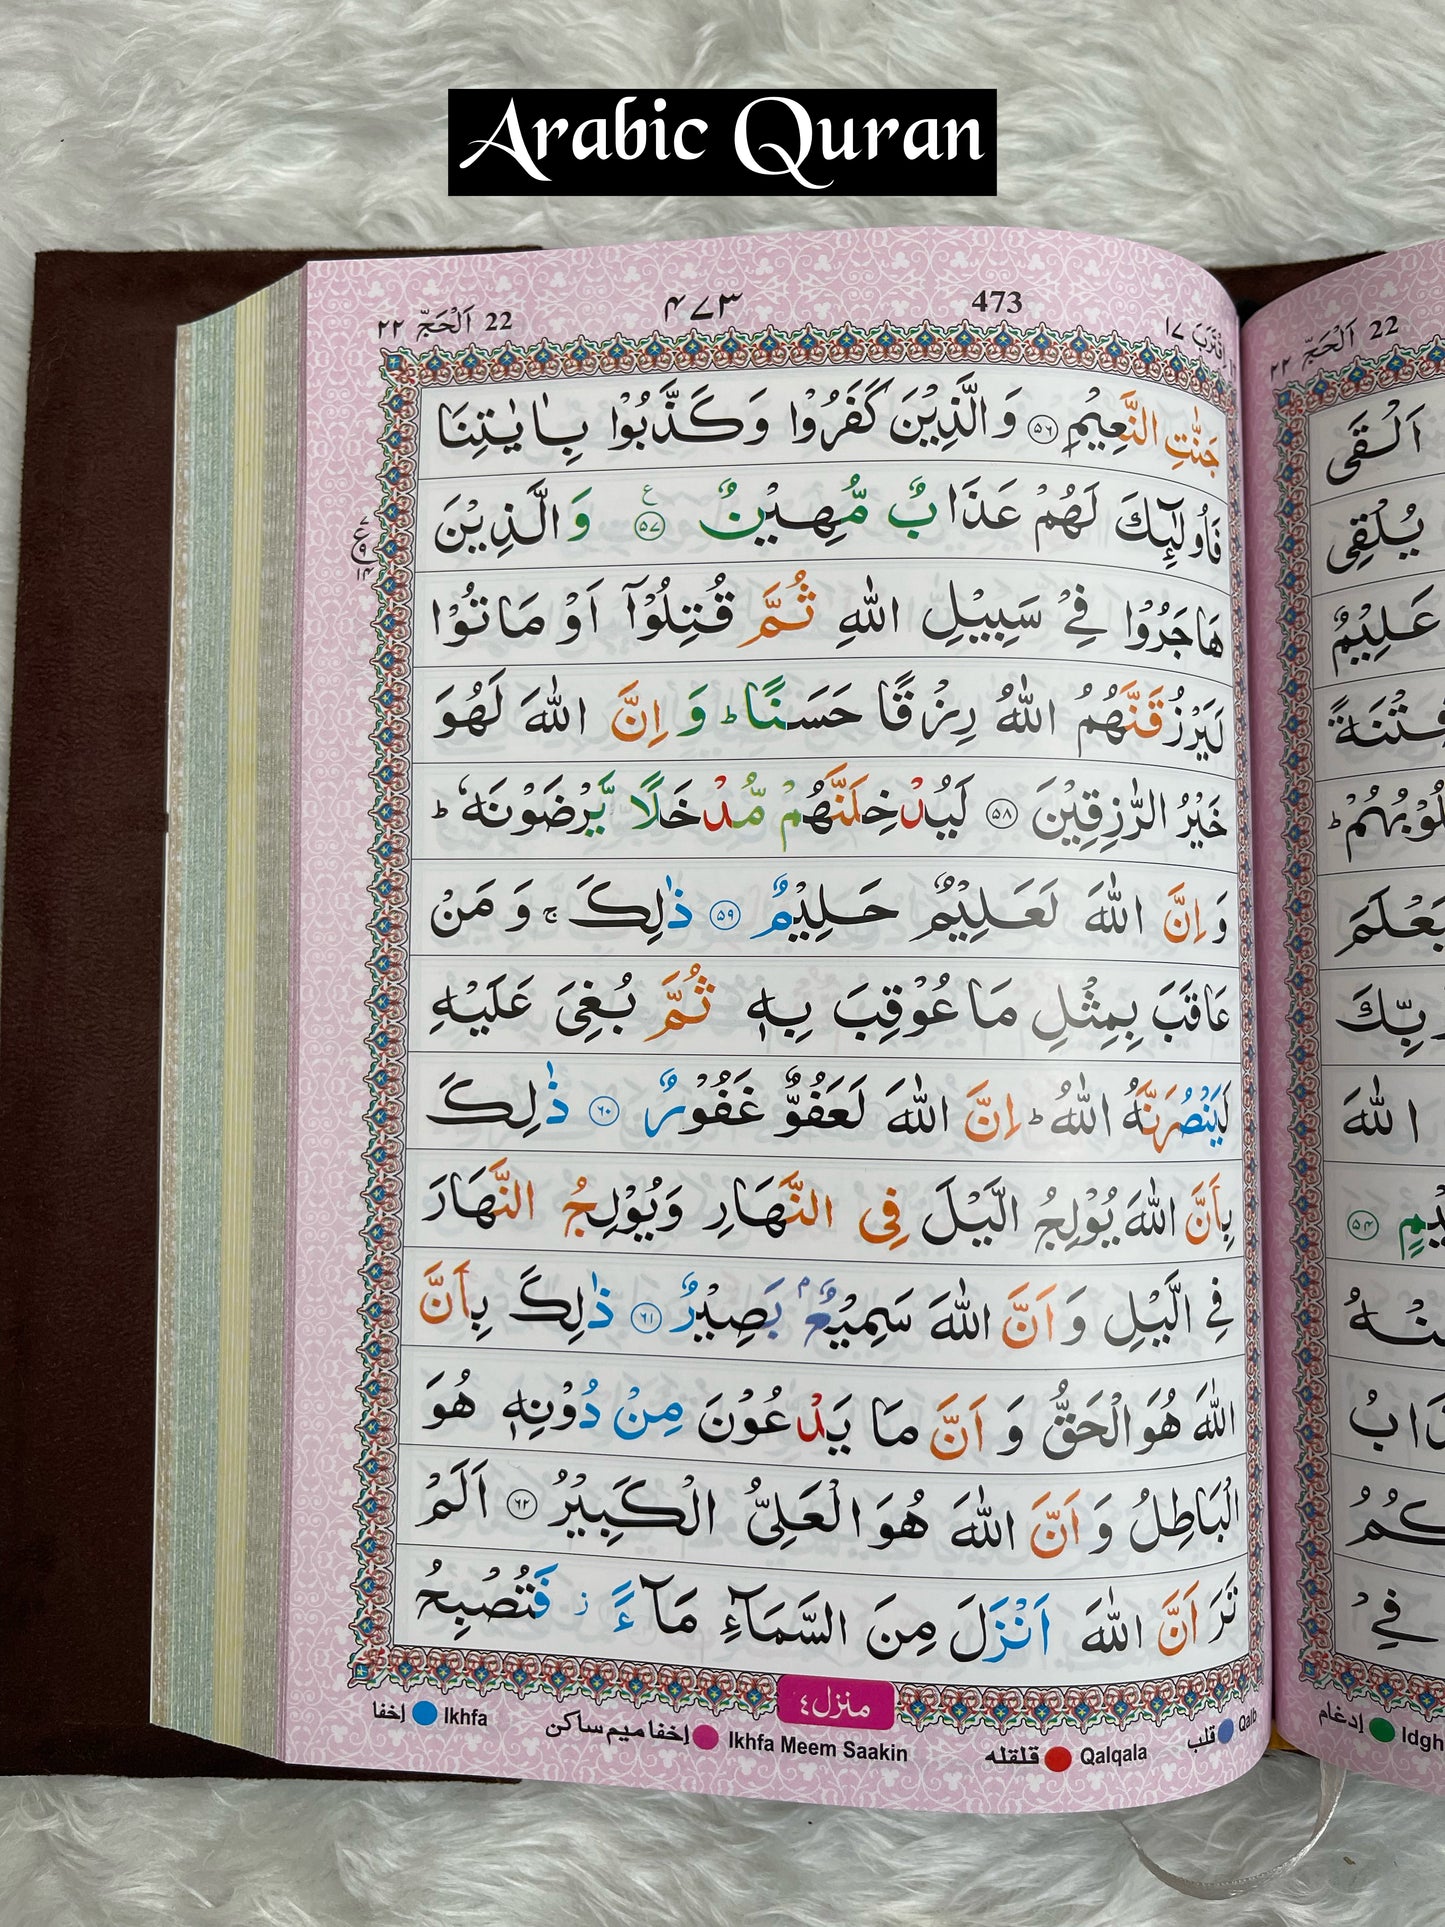 Arabic Quran
اَلْحَجّ ٢٢ 22 ۴۷۳ 473 اِقْتَرَبَ ١٧
جَنّٰتِ النَّعِیْمِ ۵۶ وَالَّذِیْنَ كَفَرُوْا وَكَذَّبُوْا بِاٰیٰتِنَا
فَاُولٰٓئِكَ لَهُمْ عَذَابٌ مُّهِیْنٌ ۵۷ ع وَالَّذِیْنَ
هَاجَرُوْا فِیْ سَبِیْلِ اللّٰهِ ثُمَّ قُتِلُوْۤا اَوْ مَاتُوْا
لَیَرْزُقَنَّهُمُ اللّٰهُ رِزْقًا حَسَنًا ؕ وَاِنَّ اللّٰهَ لَهُوَ
خَیْرُ الرّٰزِقِیْنَ ۵۸ لَیُدْخِلَنَّهُمْ مُّدْخَلًا یَّرْضَوْنَهٗ ؕ
وَاِنَّ اللّٰهَ لَعَلِیْمٌ حَلِیْمٌ ۵۹ ذٰلِكَ ۚ وَمَنْ
عَاقَبَ بِمِثْلِ مَا عُوْقِبَ بِهٖ ثُمَّ بُغِیَ عَلَیْهِ
لَیَنْصُرَنَّهُ اللّٰهُ ؕ اِنَّ اللّٰهَ لَعَفُوٌّ غَفُوْرٌ ۶۰ ذٰلِكَ
بِاَنَّ اللّٰهَ یُوْلِجُ الَّیْلَ فِی النَّهَارِ وَیُوْلِجُ النَّهَارَ
فِی الَّیْلِ وَاَنَّ اللّٰهَ سَمِیْعٌۢ بَصِیْرٌ ۶۱ ذٰلِكَ بِاَنَّ
اللّٰهَ هُوَ الْحَقُّ وَاَنَّ مَا یَدْعُوْنَ مِنْ دُوْنِهٖ هُوَ
الْبَاطِلُ وَاَنَّ اللّٰهَ هُوَ الْعَلِیُّ الْكَبِیْرُ ۶۲ اَلَمْ
تَرَ اَنَّ اللّٰهَ اَنْزَلَ مِنَ السَّمَآءِ مَآءً ؗ فَتُصْبِحُ
منزل ٤
إخفا Ikhfa إخفا میم ساکن Ikhfa Meem Saakin قلقله Qalqala قلب Qalb
اَلْحَجّ ٢٢ 22
اَلْقَی
یُلْقِی
عَلِیْمٌ
فِتْنَةً
یَعْلَمَ
رَّبِّكَ
اللّٰهَ
۵۴
فِیْ
إدغام